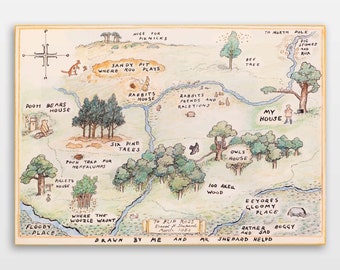 NICE FOR
PIKNICKS
TO NORTH POLE
BIG
STONES
AND
ROX
BEE
TREE
SANDY PIT
WHERE ROO PLAYS
RABBITS
HOUSE
RABBITS
FRIENDS AND
RALETIONS
POOH BEARS
HOUSE
MY
HOUSE
SIX PINE
TREES
POOH TRAP FOR
HEFFALUMPS
OWLS
HOUSE
PIGLETS
HOUSE
100 AKER
WOOD
EEYORES
GLOOMY
PLACE
WHERE THE
WOOZLE WASNT
FLOODY
PLACE
RATHER
BOGGY
AND SAD
DRAWN BY ME AND MR SHEPARD HELPD